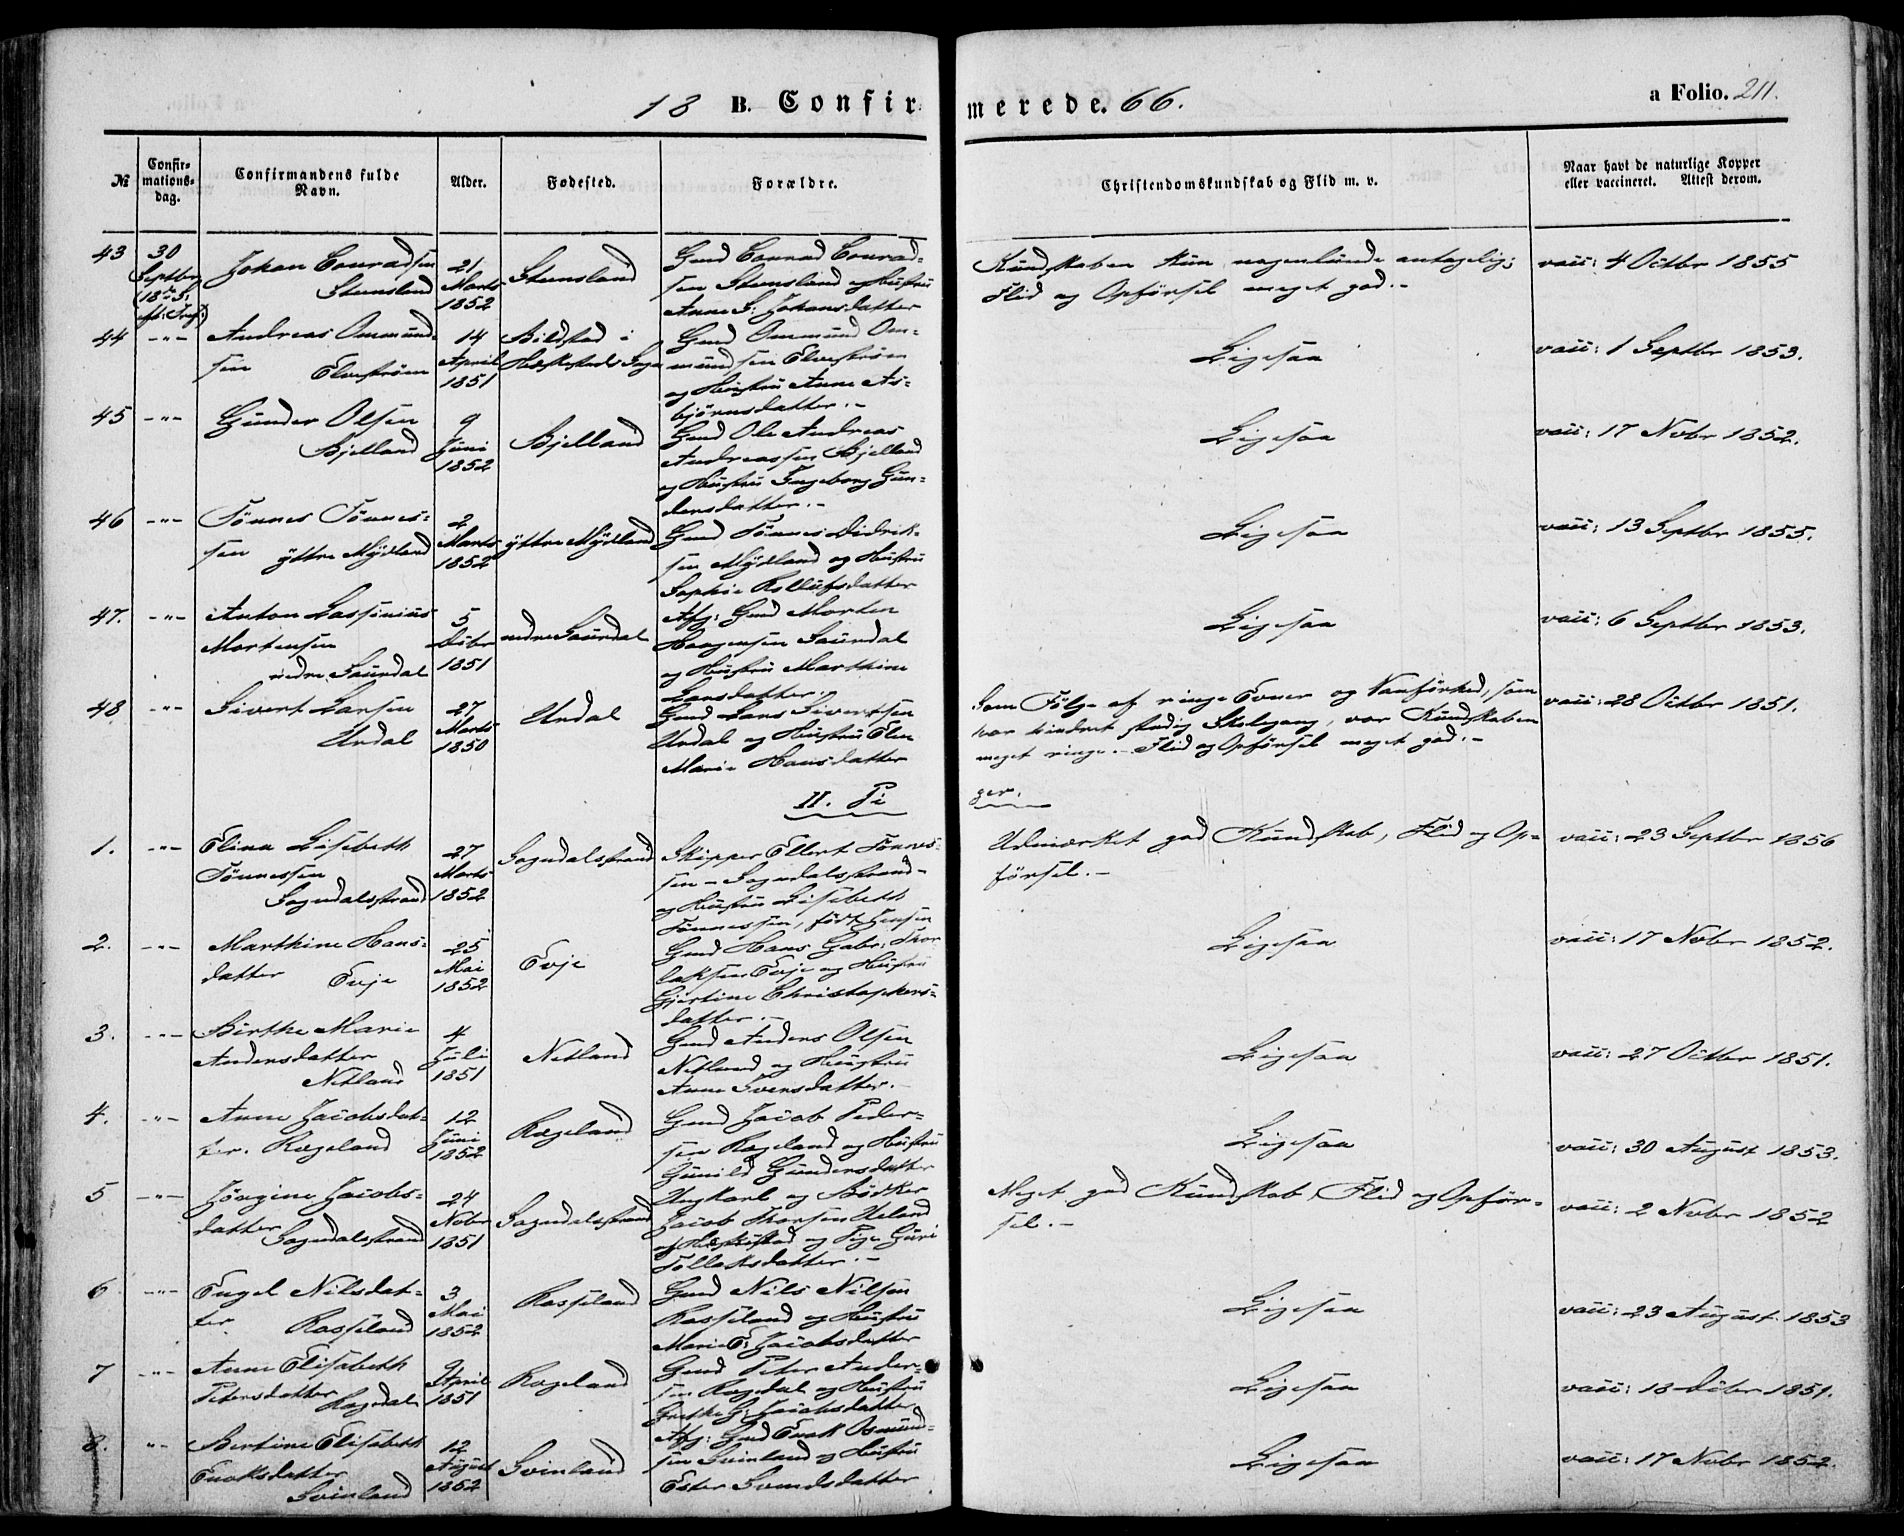 18 B. Confirmerede. 66.
a Folio. 211.
№
Confirmationsdag.
Confirmandens fulde Navn.
Alder.
Fødested.
Forældre.
Christendomskundskab og Flid m. v.
Naar havt de naturlige Kopper eller vaccineret. Attest derom.
43
30 Septbr (18de S. eft. Tref:)
Johan Conradsen
Steensland
21 Marts 1852
Steensland
Gmd Conrad Conrad-
sen Steensland og Hustru
Anne S: Johansdatter
Kundskaben kun nogenlunde antagelig;
Flid og Opførsel meget god.-
vacc: 4 Octbr 1855
44
-"-
Andreas Ommund-
sen Elvestrøm
14 April 1851
Bilstad i
Heskestads Sogn
Gmd Ommund Om-
mundsen Elvestrøm
og Hustru Anne As-
bjørnsdatter.-
Ligesaa
vacc: 1 Septbr 1853.
45
-"-
Gunder Olsen
Bjelland
9 Juni 1852
Bjelland
Gmd Ole Andreas
Andreassen Bjelland
og Hustru Ingeborg Gun-
dersdatter.-
Ligesaa
vacc: 17 Novbr 1852.
46
-"-
Tönnes Tönnes-
sen yttre Mydland
2 Marts 1852
yttre Mydland
Gmd Tönnes Didrik-
sen Mydland og Hustru
Sophie Rollufsdatter
Ligesaa
vacc: 13 Septbr 1855.
47.
-"-
Anton Lassenius
Mortensen
nedre Saurdal
5 Decbr 1851
nedre Saurdal
Afg: Gmd Morten
Haagensen Saurdal
og Hustru Marthine
Larsdatter.
Ligesaa
vacc: 6 Septbr 1853.
48
-"-
Sivert Larsen
Urdal
27 Marts 1850
Urdal
Gmd Lars Sivertsen
Urdal og Hustru Elen
Marie Hansdatter
Som Følge af ringe Evner og Vanførhed, som
har hindret stadig Skolegang, var Kundskaben
meget ringe.- Flid og Opførsel meget god.-
vacc: 28 Octbr 1851.
II. Pi
ger.
1.
-"-
Elina Lisebeth
Tönnessen
Sogndalsstrand
27 Marts 1852
Sogndalsstrand
Skipper Ellert Tönnes-
sen - Sogndalsstrand -
og Hustru Lisebeth
Tönnessen, født Jensen
Udmærket god Kundskab, Flid og Op-
førsel.-
vacc: 23 Septbr 1856
2.
-"-
Marthine Hans-
datter Evje
25 Mai 1852
Evje
Gmd Hans Gabr: Thor
laksen Evje og Hustru
Gjertine Christophers-
datter.-
Ligesaa
vacc: 17 Novbr 1852.
3.
-"-
Birthe Marie
Andersdatter
Netland
4 Juli 1851
Netland
Gmd Anders Olsen
Netland og Hustru
Anne Svensdatter.-
Ligesaa
vacc: 27 Octbr 1851.
4.
-"-
Anne Jacobsdat-
ter. Rægeland
12 Juni 1852
Rægeland
Gmd Jacob Peder-
sen Rægeland og Hustru
Gunild Gundersdatter
Ligesaa
vacc: 30 August 1853.
5
-"-
Jörgine Jacobs-
datter
Sogndalsstrand
24 Novbr 1851
Sogndalsstrand
Ungkarl og Bødker
Jacob Thorsen Ueland
og Pige Guri
Tollaksdatter.-
Meget god Kundskab, Flid og Opfør-
sel.-
vacc: 2 Novbr 1852
6
-"-
Engel Nilsdat-
ter. Rosseland
3 Mai 1852
Rosseland
Gmd Nils Nilsen
Rosseland og Hustru
Marie E: Jacobsdatter
Ligesaa
vacc: 23 August 1853
7
-"-
Anne Elisabeth
Petersdatter
Rægdal
9 April 1851
Rægeland
Gmd Peter Ander-
sen Rægdal og Hustru
Grethe G: Jacobsdatter
Ligesaa
vacc: 18 Decbr 1851.
8.
-"-
Bertine Elisabeth
Enoksdatter
Svinland
12 August 1852
Svinland
Afg: Gmd Enok Osmund-
sen Svinland og Hustru
Ester Svendsdatter
Ligesaa
vacc: 17 Novbr 1852.